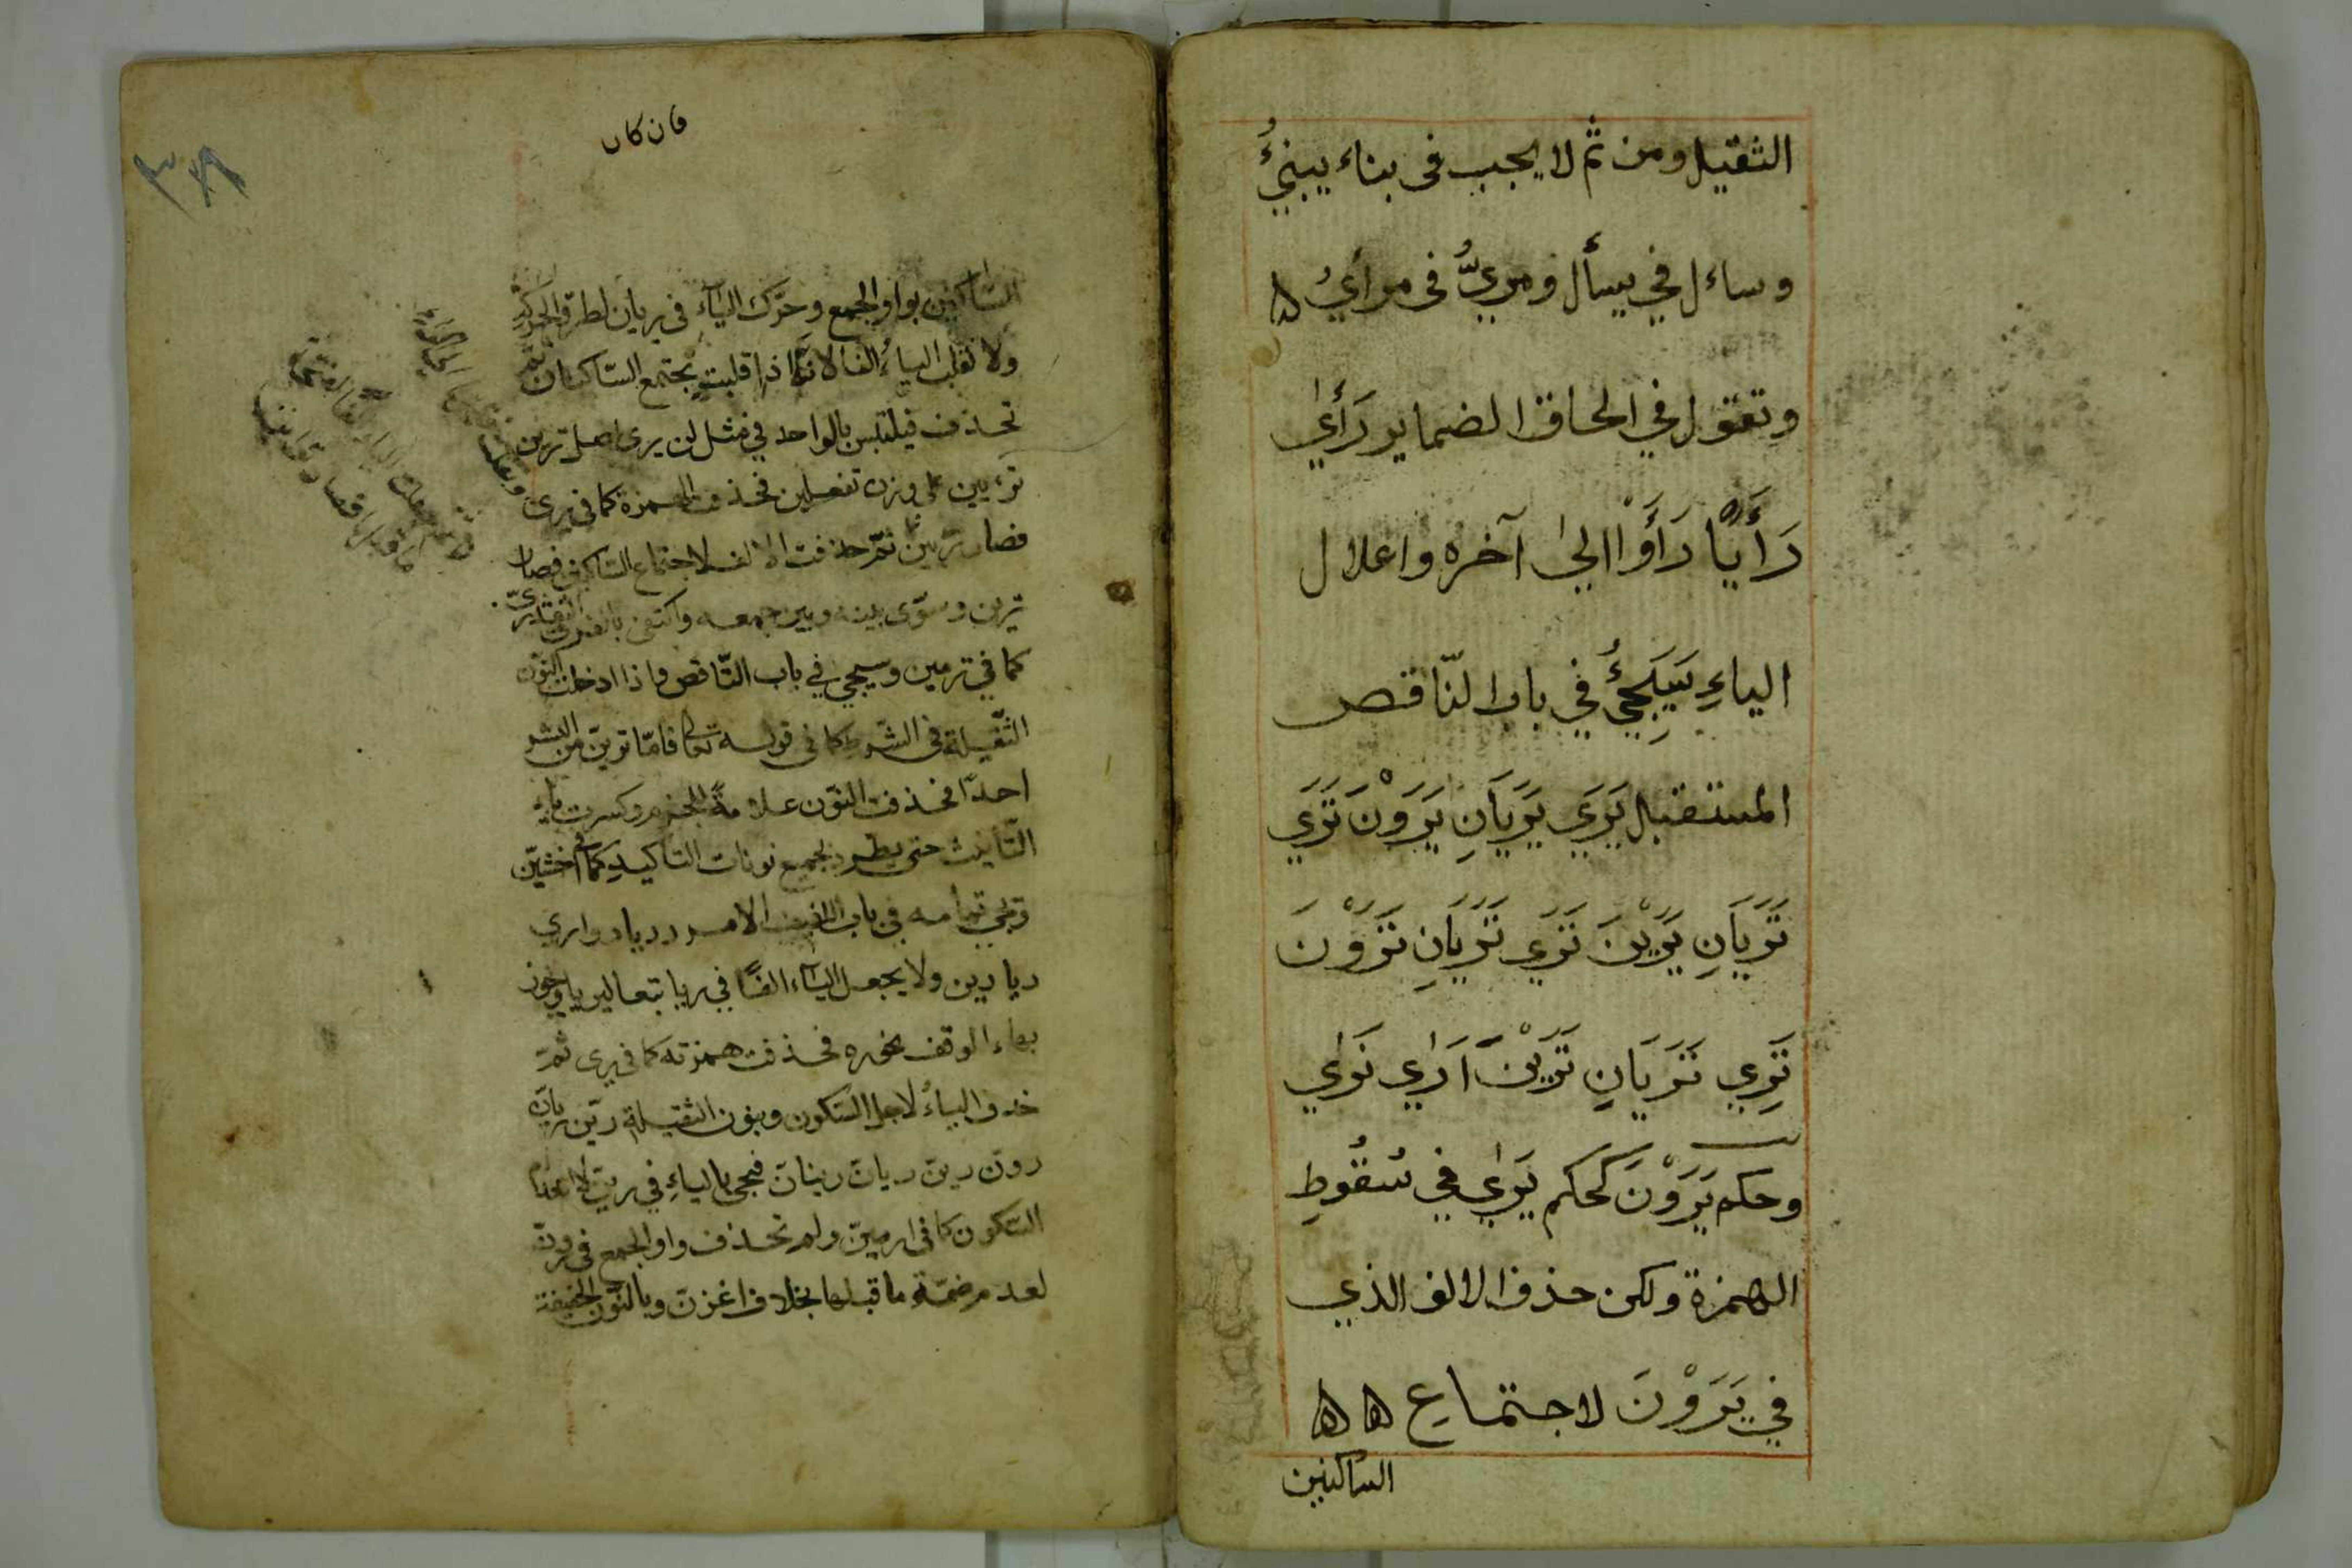 الثقيل ومن ثم لا يجب فى بناء يبنئُ
وساءل في يسأل ومريٌّ فى مرأيٌ ه
وتقول في الحاق الضماير رَأَىٰ
رَأَيَا رَأَوْا الىٰ آخره واعلال
الياءِ سَيَجِئُ في باب النّاقص
المستقبل يَرَي يَرَيَانِ يَرَوْنَ تَرَي
تَرَيَانِ يَرَيْنَ تَرَي تَرَيَانِ تَرَوْنَ
تَرِي تَرَيَانِ تَرَيْنَ اَرَاي نَرَاي
وحكم يَرَوْنَ كَحكم يَراي في سُقُوطِ
الهمزة ولكن حذف الالف الذي
في يَرَوْنَ لاجتماع ه ه
الساكنين
فان كان
٣٨٩
الساكنين بواو الجمع وحرّك اليآء فى يريان لطروّ الحركة
ولا تقلب الياءُ الفا لانّه اذا قلبت يجتمع السّاكنان ثم
تحذف فيلتبس بالواحد في مثل لن يرى اصل ترين
ترءيين على وزن تفعلين فحذف الهمزة كما فى يرى
فصار تريين ثمّ حذفت الالف لاجتماع السّاكنين فصار
ترين وسوّى بينه وبين جمعه واكتفى بالفرق التقديريّ
كما في ترمين وسيجئ في باب النّاقص واذا ادخلت النّون
الثّقيلة فى الشّرط كما فى قوله تعالى فامّا ترينّ من البشر
احدًا فحذفت النّون علامةً للجزم وكسرت ياء
التّأنيث حتى يطرد بجميع نونات التّاكيدِ كما فى اخشينّ
وتجئ تمامه فى باب اللفيف الامر ر ريا روا ري
ريا رين ولا يجعل اليآء الفًا في ريا تبعا ليريا ويجوز
بهاء الوقف نحو ره فحذفت همزته كما فى يرى ثمّ
حذف الياءُ لاجل السّكون وبنون الثقيلة ريّن ريانّ
رونّ رينّ ريانّ رينانّ فيجئ بالياءِ في رينّ لانعدام
السّكون كما فى ارمينّ ولم تحذف واو الجمع فى رونّ
لعدم ضمّة ما قبلها بخلاف اغزنّ وبالنّون الخفيفة